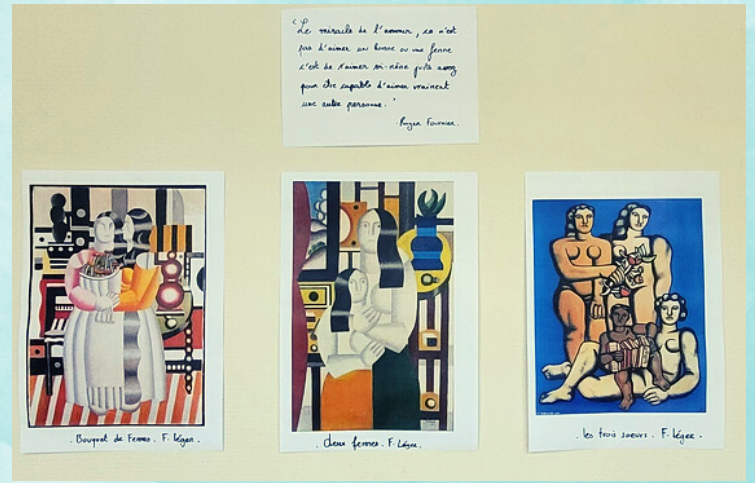 "Le miracle de l'amour, ce n'est
pas d'aimer un homme ou une femme
c'est de s'aimer soi-même juste assez
pour être capable d'aimer vraiment
une autre personne."
. Roger Fournier.
. Bouquet de Femmes. F. Léger.
. deux femmes. F. Léger.
. les trois soeurs. F. Léger.